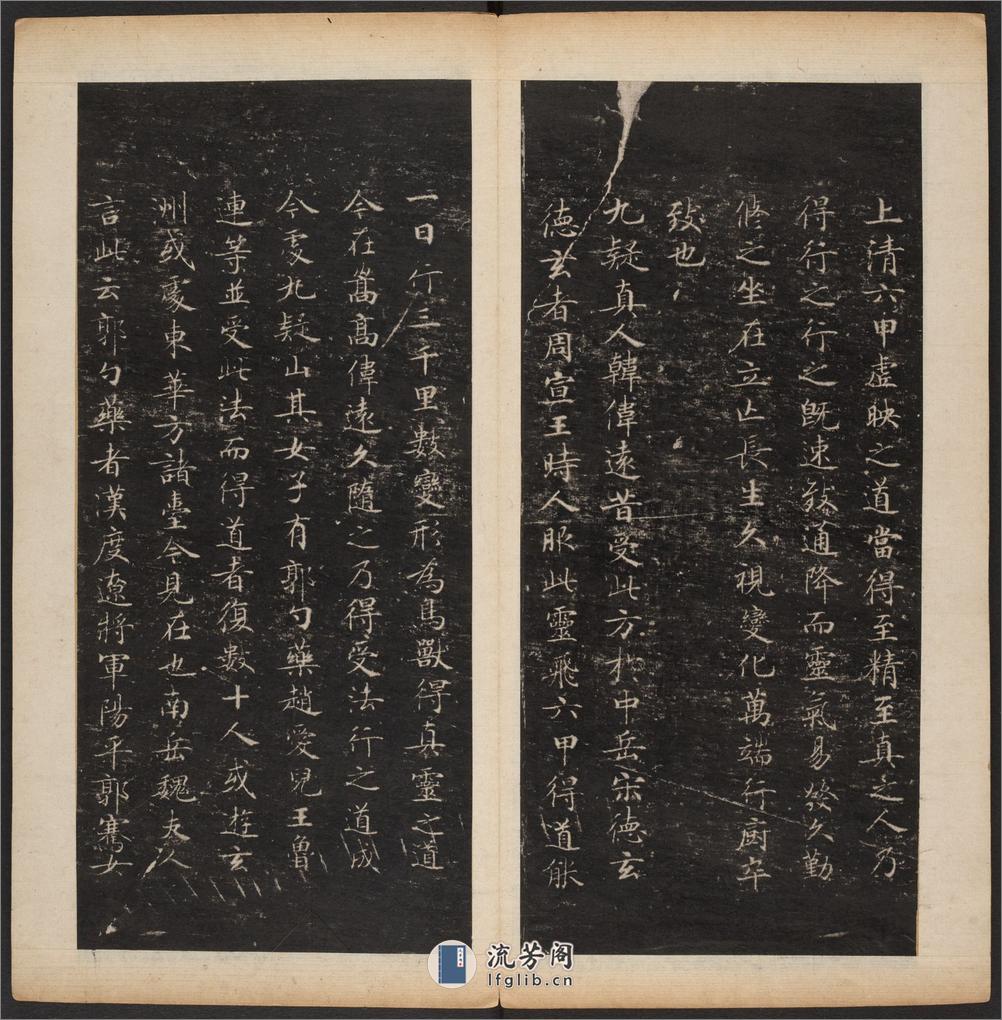 上清六甲虛映之道當得至精至真之人乃
得行之行之既速致通降而靈氣易發久勤
脩之坐在立亡長生久視變化萬端行廚卒
致也
九疑真人韓偉遠昔受此方於中岳宋德玄
德玄者周宣王時人服此靈飛六甲得道能
一日行三千里數變形為鳥獸得真靈之道
今在嵩高偉遠久隨之乃得受法行之道成
今處九疑山其女子有郭勺藥趙愛兒王魯
連等並受此法而得道者復數十人或遊玄
洲或處東華方諸臺今見在也南岳魏夫人
言此云郭勺藥者漢度遼將軍陽平郭騫女
流芳阁
lfglib.cn